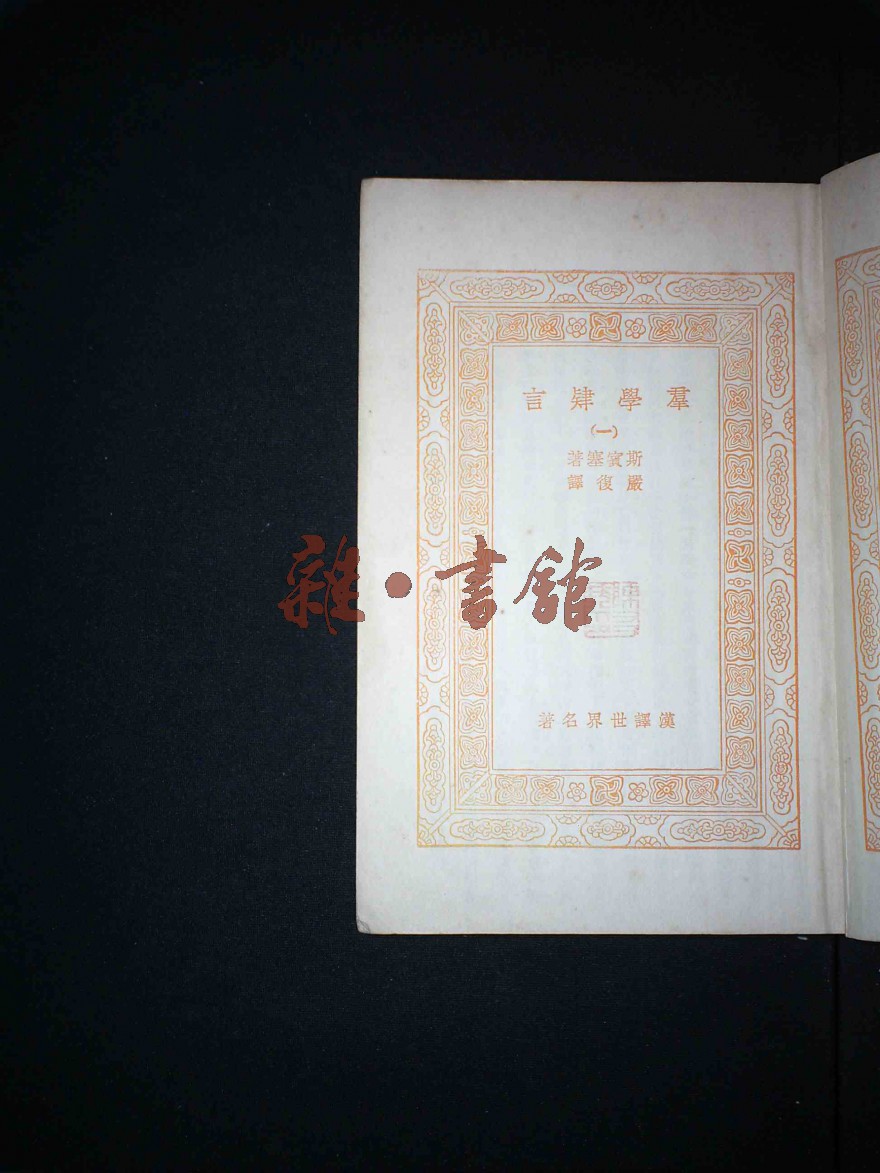 羣學肄言
(一)
斯賓塞著
嚴復譯
雜·書館
漢譯世界名著